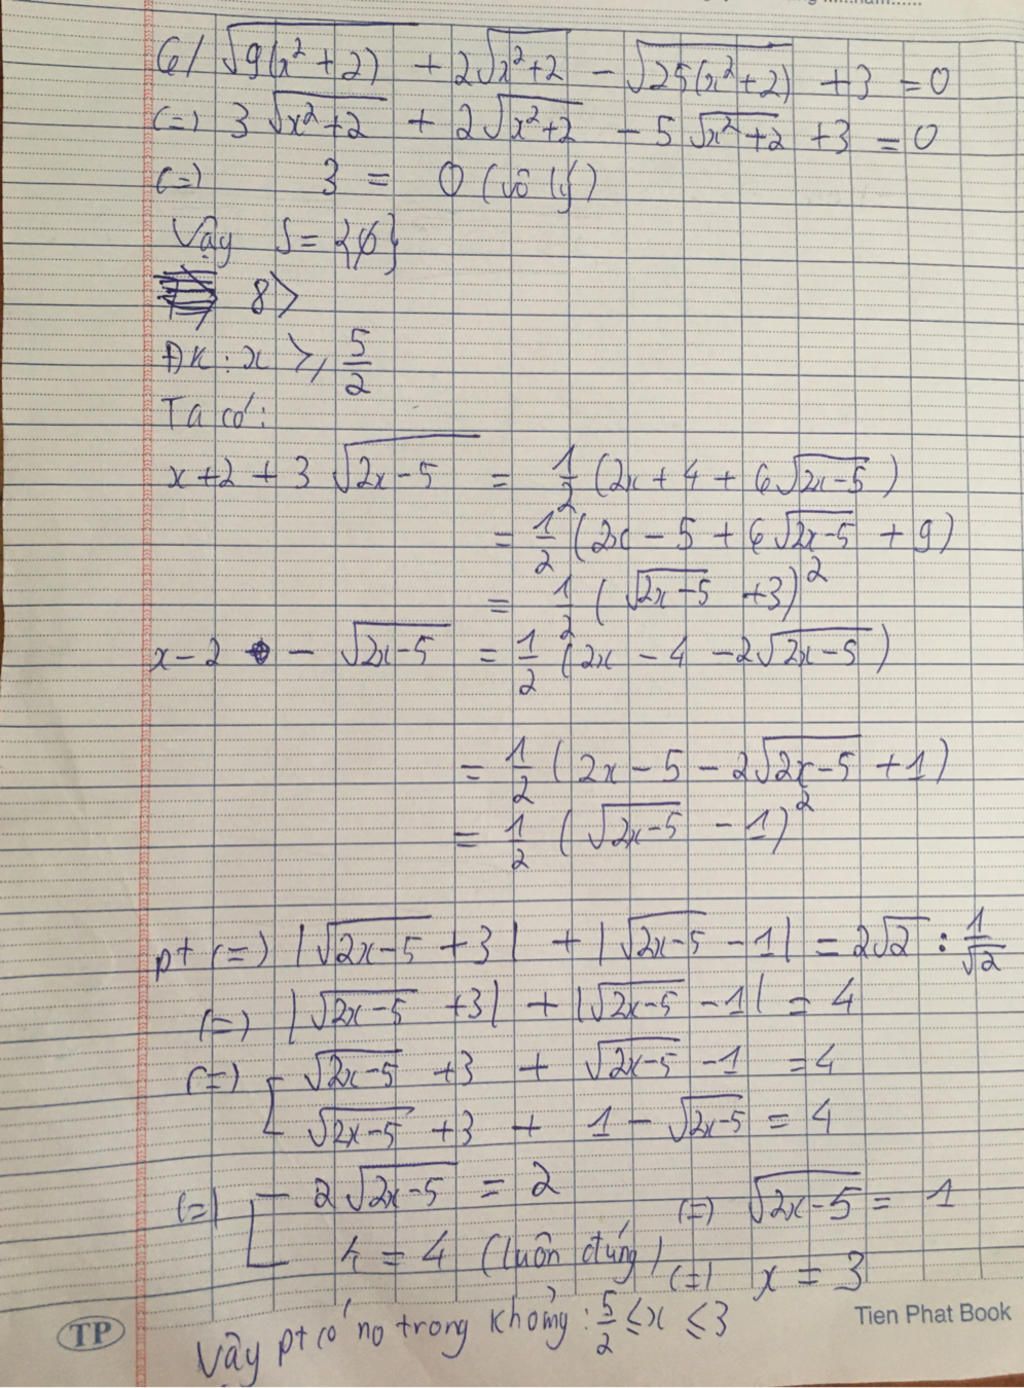 6/ √(9(x²+2)) + 2√(x²+2) − √(25(x²+2)) + 3 = 0
(=) 3√(x²+2) + 2√(x²+2) − 5√(x²+2) + 3 = 0
(=) 3 = 0 (vô lý)
Vậy S = {∅}
8>
ĐK: x ≥ 5/2
Ta có:
x + 2 + 3√(2x−5) = 1/2 (2x + 4 + 6√(2x−5))
= 1/2 (2x − 5 + 6√(2x−5) + 9)
= 1/2 (√(2x−5) + 3)²
x − 2 − √(2x−5) = 1/2 (2x − 4 − 2√(2x−5))
= 1/2 (2x − 5 − 2√(2x−5) + 1)
= 1/2 (√(2x−5) − 1)²
pt (=) |√(2x−5) + 3| + |√(2x−5) − 1| = 2√2 : 1/√2
(=) |√(2x−5) + 3| + |√(2x−5) − 1| = 4
(=) [ √(2x−5) + 3 + √(2x−5) − 1 = 4
√(2x−5) + 3 + 1 − √(2x−5) = 4
(=) [ 2√(2x−5) = 2 (=) √(2x−5) = 1
4 = 4 (luôn đúng) (=) x = 3
Vậy pt có no trong khoảng: 5/2 ≤ x ≤ 3
TP
Tien Phat Book